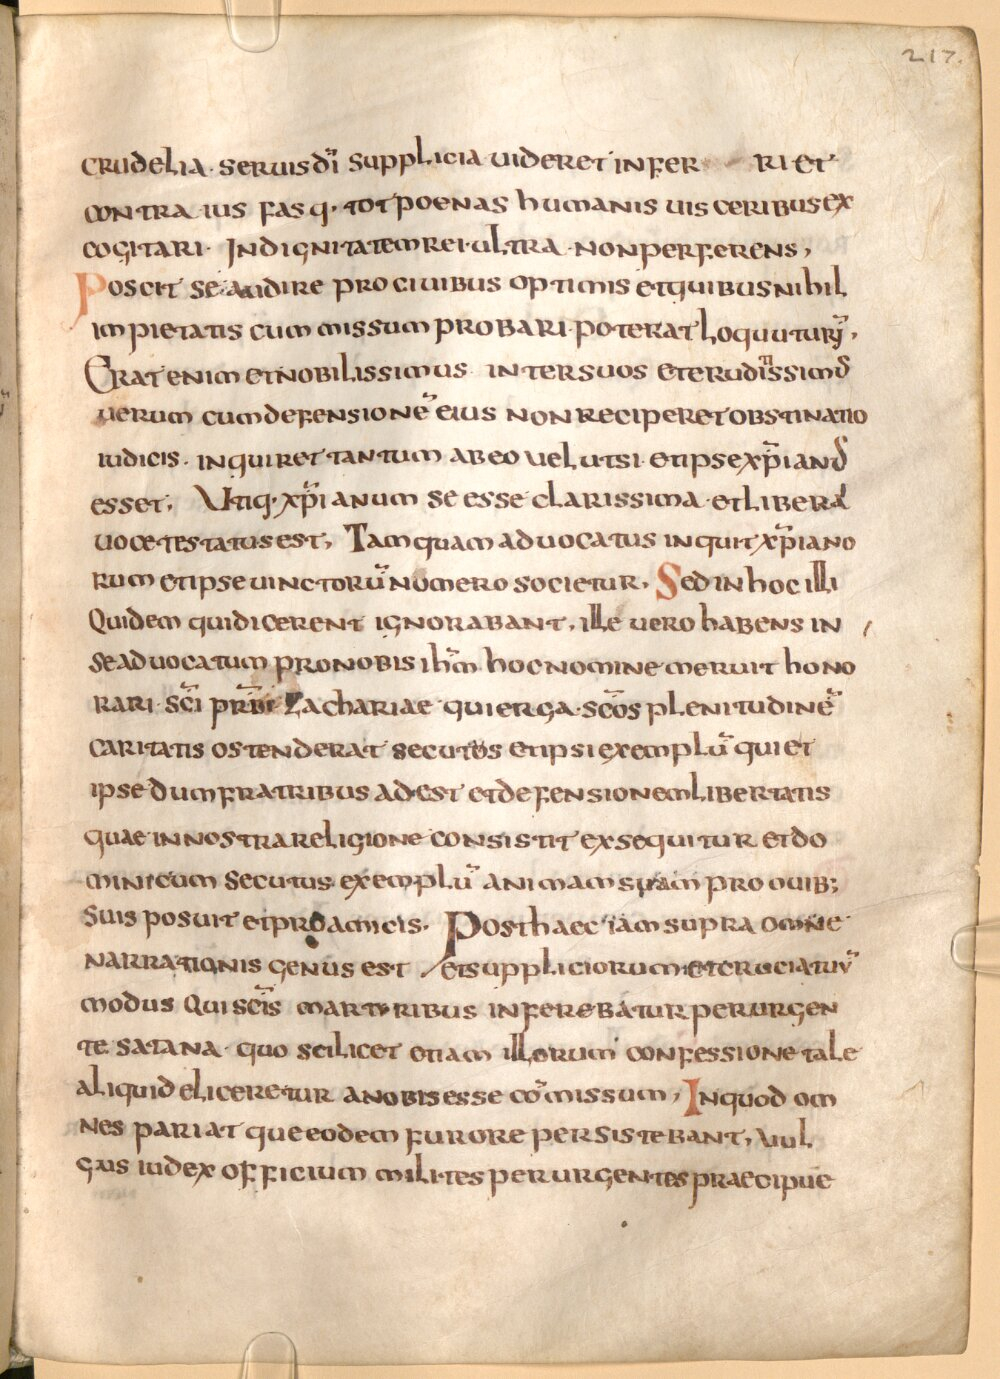 217.
crudelia· seruis dī supplicia uideret infer ri et
contra ius fasq· tot poenas humanis uisceribus ex
cogitari· Indignitatem rei ultra non perferens,
Poscit se audire pro ciuibus optimis et quibus nihil
impietatis cum missum probari poterat loquuturū,
Erat enim et nobilissimus inter suos et eruditissimus
uerum cum defensionē eius non reciperet obstinatio
iudicis· inquiret tantum ab eo uelutsi et ipse xp̄ianus
esset, Utiq· xp̄ianum se esse clarissima et libera
uoce testatus est, Tamquam aduocatus inquit xp̄iano
rum et ipse uinctorū numero societur, Sed in hoc illi
Quidem quid icerent ignorabant, ille uero habens in
se aduocatum pro nobis ihm̄ hoc nomine meruit hono
rari sc̄i prb̄i Zachariae qui erga sc̄os plenitudinē
caritatis ostenderat secutus et ipsi exemplū qui et
ipse dum fratribus adest et defensionem libertatis
quae in nostra religione consistit exsequitur et do
minicum secutus exemplū animam suam pro ouib;
suis posuit et pro amicis· Post haec iam supra omne
narrationis genus est et suppliciorum et cruciatuū
modus Qui sc̄is martyribus inferebatur perurgen
te satana· quo scilicet etiam illorum confessione tale
aliquid eliceretur a nobis esse cōmissum, In quod om
nes pariat que eodem furore persistebant, Uul
gus iudex officium milites perurgentes praecipue